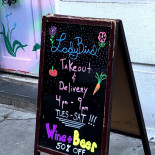 LadyBird
Takeout
&
Delivery
4pm - 9pm
TUES-SAT!!!
Wine & Beer
50% OFF